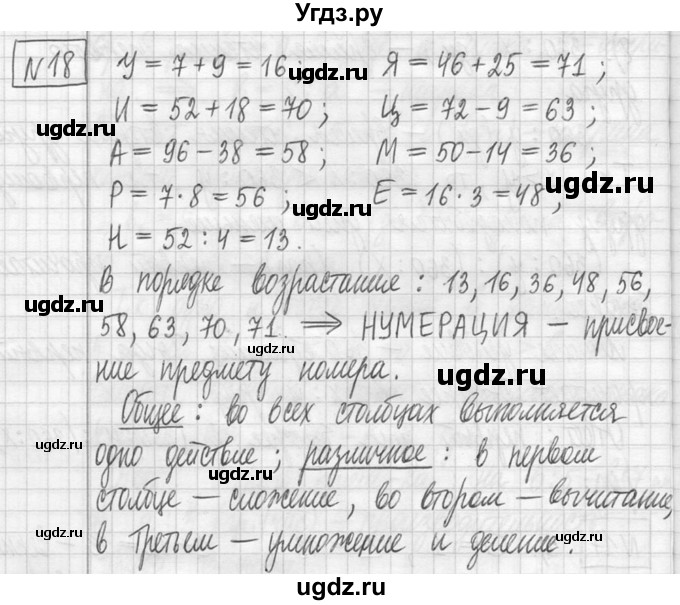 Угдз.ру
№18 У = 7 + 9 = 16; Я = 46 + 25 = 71;
И = 52 + 18 = 70; Ц = 72 - 9 = 63;
А = 96 - 38 = 58; М = 50 - 14 = 36;
Р = 7 · 8 = 56; Е = 16 · 3 = 48,
Н = 52 : 4 = 13.
В порядке возрастание: 13, 16, 36, 48, 56,
58, 63, 70, 71. ⇒ НУМЕРАЦИЯ - присвое-
ние предмету номера.
Общее: во всех столбцах выполняется
одно действие; различное: в первом
столбце - сложение, во втором - вычитание,
в третьем - умножение и деление.
ugdz.ru
ugdz.ru
ugdz.ru
ugdz.ru
ugdz.ru
ugdz.ru
ugdz.ru
ugdz.ru
ugdz.ru
ugdz.ru
ugdz.ru
ugdz.ru
ugdz.ru